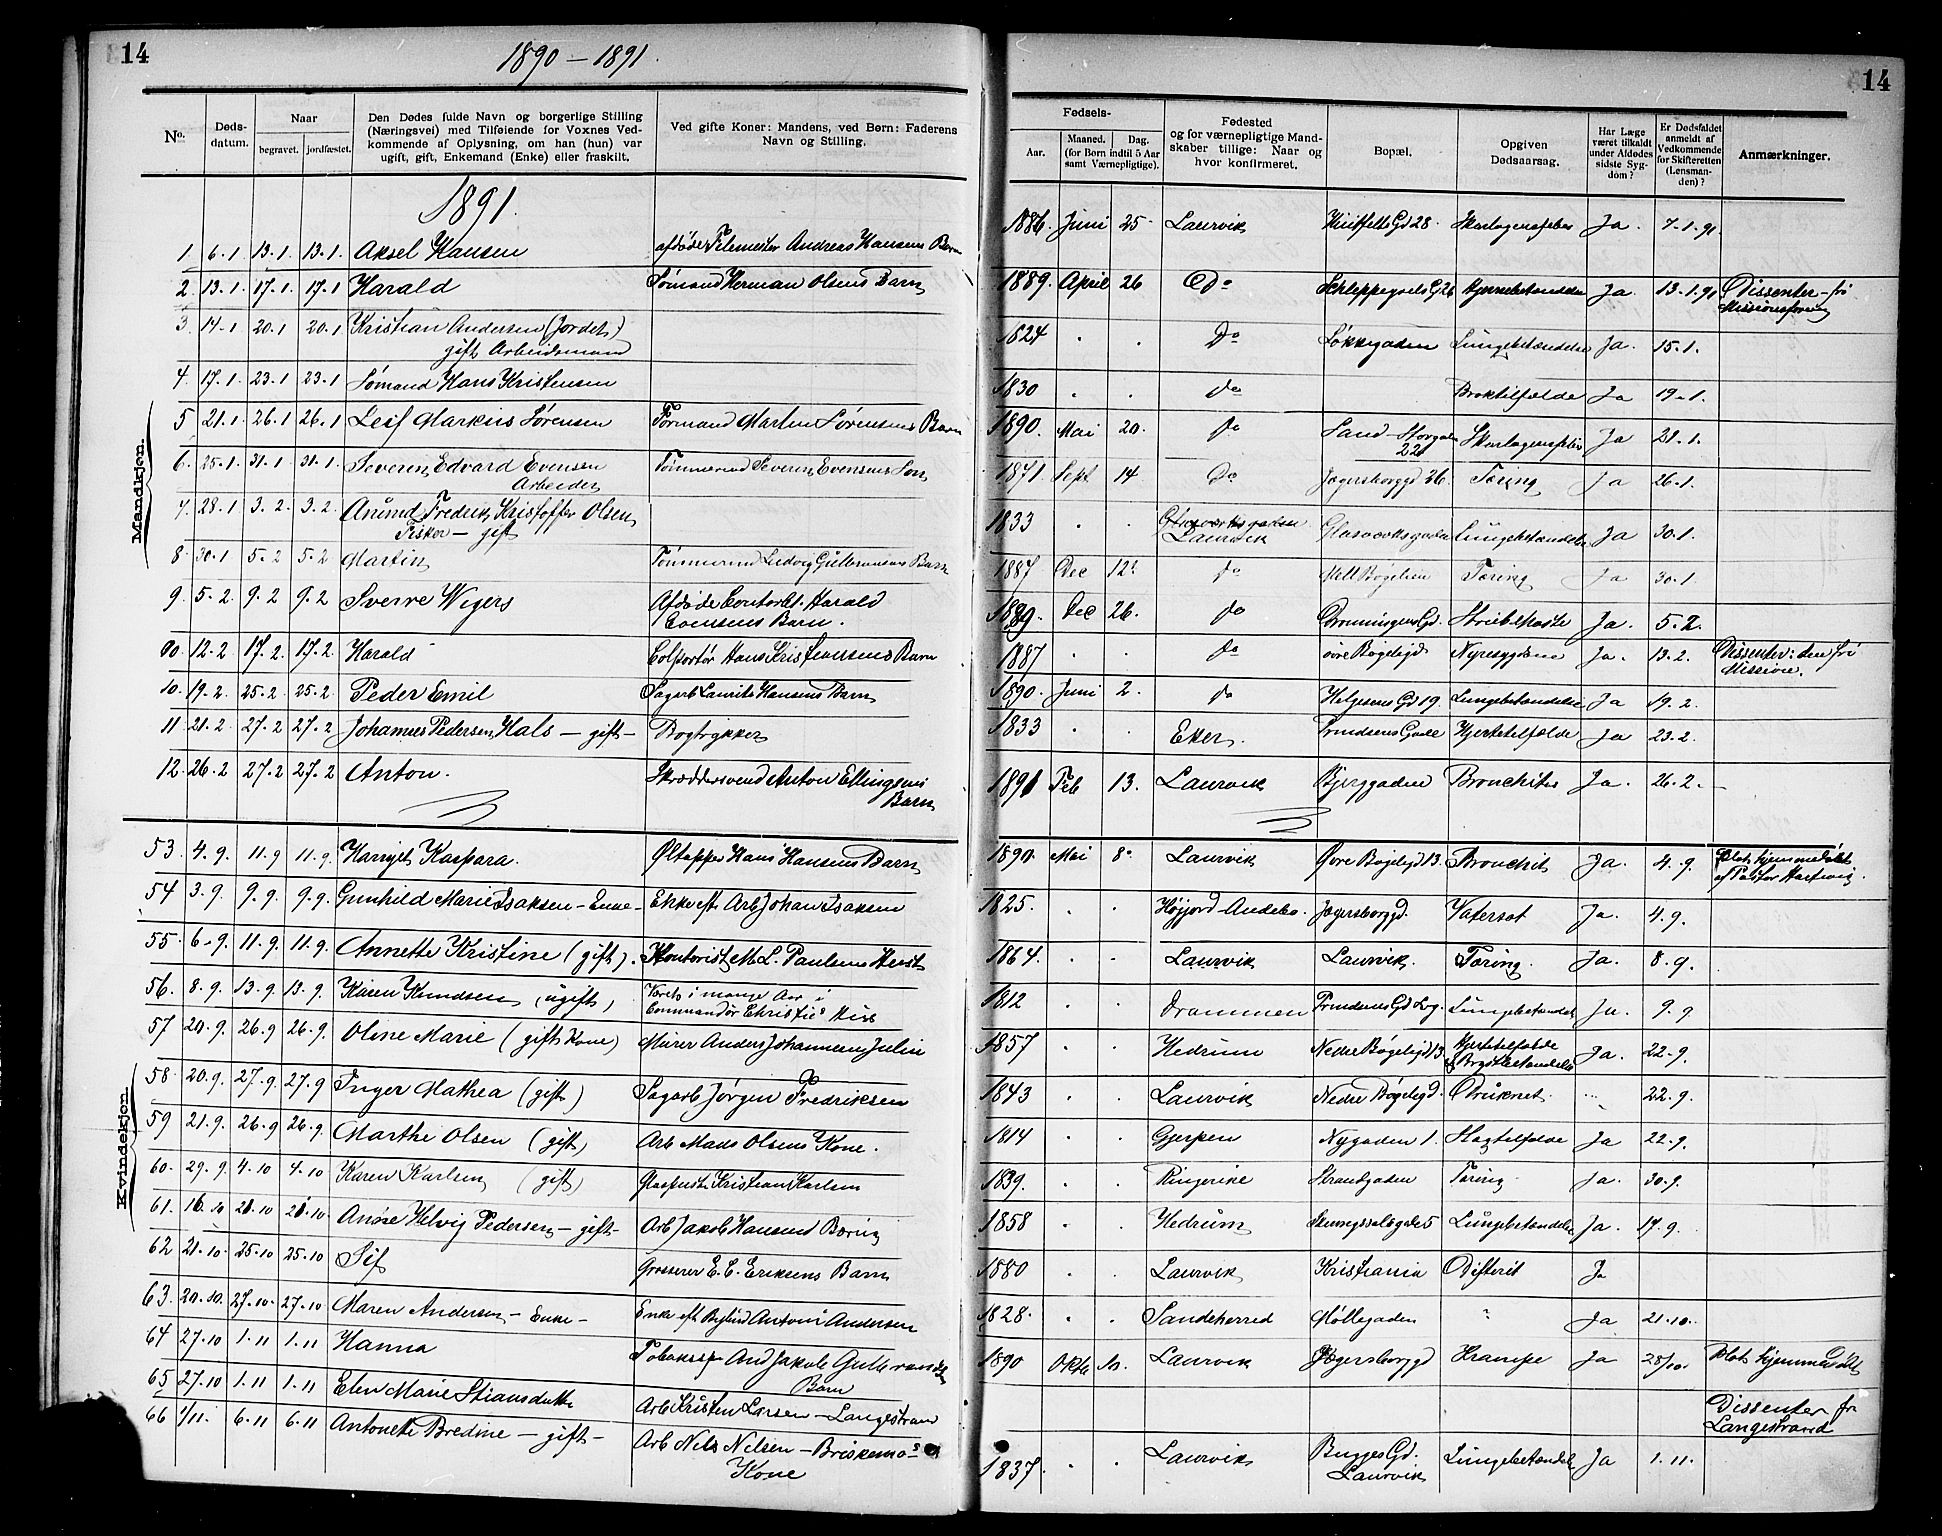 14
1890 – 1891.
14
No.
Døds-
datum.
Naar
begravet. jordfæstet.
Den Dødes fulde Navn og borgerlige Stilling
(Næringsvei) med Tilføiende for Voxnes Ved-
kommende af Oplysning, om han (hun) var
ugift, gift, Enkemand (Enke) eller fraskilt.
Ved gifte Koner: Mandens, ved Børn: Faderens
Navn og Stilling.
Fødsels-
Aar. Maaned. Dag.
(for Børn indtil 5 Aar
samt Værnepligtige).
Fødested
og for værnepligtige Mand-
skaber tillige: Naar og
hvor konfirmeret.
Bopæl.
Opgiven
Dødsaarsag.
Har Læge
været tilkaldt
under Afdødes
sidste Syg-
dom?
Er Dødsfaldet
anmeldt af
Vedkommende
for Skifteretten
(Lensman-
den)?
Anmærkninger.
Mandkjøn.
1891.
1 6.1 13.1 13.1 Aksel Hansen afdøde Filemester Andreas Hansens Barn 1886. Juni 25 Laurvik Gd 28. Skarlagensfeber Ja. 7.1.91.
2 13.1 17.1 17.1 Harald Sømand Herman Olsens Barn 1889. April 26 Do Schleppegrels G 26 Hjernebetændelse Ja. 13.1.91 Dissenter – fri
Missionsforening
3 14.1 20.1 20.1 Kristian Andersen (Jordet)
gift Arbeidsmand 1824 . . Do Løkkegaden Lungebetændelse Ja. 15.1.
4 17.1 23.1 23.1 Sømand Hans Kristensen 1830 . . do Broktilfælde Ja 19.1.
5 21.1 26.1 26.1 Leif Markus Sørensen Formand Martin Sørensens Barn 1890. Mai 20. do Sand – Storgaden
22 Skarlagensfeber Ja 21.1.
6. 25.1 31.1 31.1 Severin Edvard Evensen
Arbeider Tømmermd Severin Evensens Søn 1871. Sept. 14 Do Jegersborggd 26. Tæring Ja 26.1.
7. 28.1 3.2 3.2 Anund Fredrik Kristoffer Olsen
Fisker – gift 1833 . . Glasværksgaden
Laurvik Glasværksgaden Lungebetændelse Ja 30.1.
8 30.1 5.2 5.2 Martin Tømmermd Ludvig Gulbransens Barn 1887 Dec 12. do Mell Bøgelien Tæring Ja 30.1.
9. 5.2. 9.2 9.2 Sverre Wigers Afdøde Contorbt. Harald
Evensens Barn. 1889. Dec 26. do Dronningens Gd. Strubehoste Ja. 5.2.
90. 12.2 17.2. 17.2. Harald Colportør Hans Kristensens Barn 1887 do øvre Bøgeligd Nyresygdom Ja. 13.2. Dissenter: den fri
Mission.
10. 19.2. 25.2 25.2 Peder Emil Sagarb Laurits Hansens Barn 1890. Juni 2. do Helgesens Gd 19. Lungebetændelse Ja 19.2.
11 21.2 27.2 27.2 Johannes Pedersen Hals – gift – Bogtrykker 1833 . . Eker. Prindsens Gade Hjertetilfælde Ja 23.2.
12. 26.2 27.2 27.2 Anton. Skræddersvend Anton Ellingsens
Barn 1891 Feb 13. Laurvik Bjerggaden Bronchites Ja. 26.2.
Kvindekjøn
53. 4.9. 11.9 11.9. Harriget Kaspara. Øltapper Hans Hansens Barn 1890 Mai 8. Laurvik Øvre Bøgeligd 13. Bronchit Ja. 4.9. Blot hjemmedøbt
af Pastor Hartwig.
54 3.9 9.9 9.9. Gunhild Marie Isaksen – Enke – Enke eft Arb Johan Isaksen 1825. . . Høyjord Andebo. Jegersborggd. Vatersot Ja. 4.9.
55. 6.9. 11.9. 11.9. Annette Kristine (gift). Kontorist M. L. Paulsens 1864. . . Laurvik Laurvik. Tæring Ja. 8.9.
56. 8.9. 13.9. 13.9. Karen Knudsen (ugift) Været i mange Aar i
Commandør Christies Hus 1812 . . Drammen Prindsens Gd Lungebetændelse Ja. 9.9
57 20.9. 26.9 26.9. Oline Marie (gift Kone) Murer Anders Johannesen Julin 1857 . . Hedrum Nedre Bøgeligd 13 Hjertetilfælde
& Brystbetændelse Ja. 22.9.
58. 20.9. 27.9. 27.9 Inger Mathea (gift) Sagarb Jørgen Fredriksen 1843 . . Laurvik Nedre Bøgeligd. Druknet. 22.9.
59 21.9. 26.9 26.9. Marthe Olsen (gift) Arb Mads Olsens Kone. 1814 . . Gjerpen Nygaden 1. Slagtilfælde Ja 22.9.
60. 29.9. 4.10 4.10 Karen Karlsen (gift) Glaspuster Kristian Karlsen 1839. . . Ringerike Strandgaden Tæring. Ja. 30.9.
61. 16.10 21.10 21.10. Anne Helvig Pedersen – gift – Arb Jakob Hansens 1858 . . Hedrum Lungebetændelse Ja. 17.9.
62 21.10. 25.10 25.10 Sif Grosserer E. C. Eriksens Barn 1880 . . Laurvik Kristiania Difterit Ja
63. 20.10. 27.10. 27.10 Maren Andersen – Enke – Enke eft Antoni Andersen 1828. . . Sandeherred Møllegaden Ja 21.10.
64 27.10 1.11 1.11 Hanna Tobaksspr And Jakob Gulbrandsen
Barn 1890 Oktbr Laurvik Jegersborggd Krampe Ja 28/10. Blot hjemmedøbt
65 27.10 1.11 1.11 Elen Marie Stiansdatter Arb Kristen Larsen – Langestrand Dissenter fr
Langestrand
66 1/11. 6.11 6.11 Antonette Bredine – gift – Arb Nels Nelsen – Briskemo's
Kone 1837. . . Laurvik Bugges Gd.
Laurvik Lungebetændelse Ja 1.11.